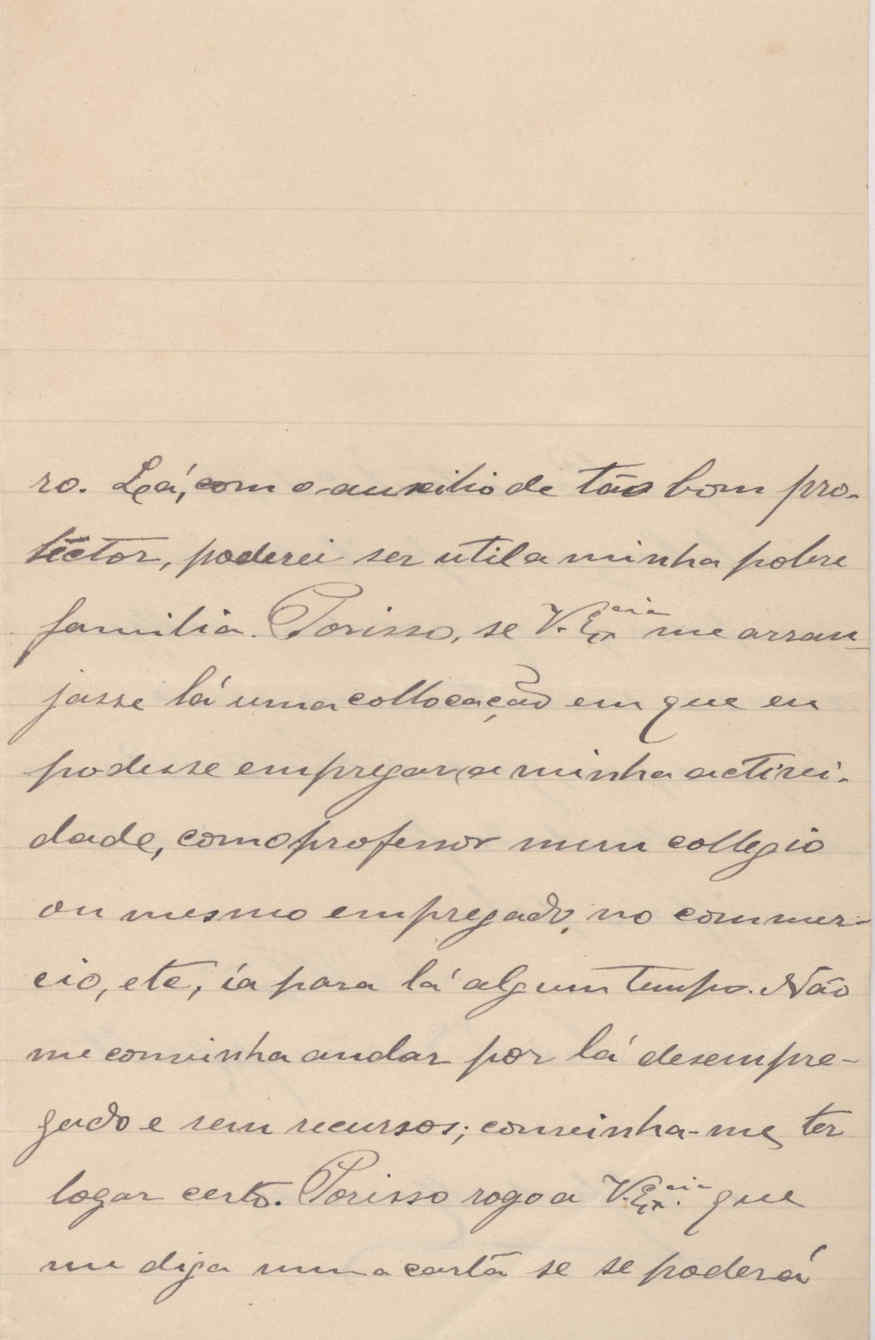 ro. Lá, com o auxilio de tão bom pro-
tector, poderei ser util a minha pobre
familia. Porisso, se V. Ex.cia me arran-
jasse lá uma collocação em que eu
podesse empregar a minha activi-
dade, como professor num collegio
ou mesmo empregado no commer-
cio, etc, ía para lá algum tempo. Não
me convinha andar por lá desempre-
gado e sem recursos; convinha-me ter
logar certo. Porisso rogo a V. Ex.cia que
me diga numa carta se se poderá